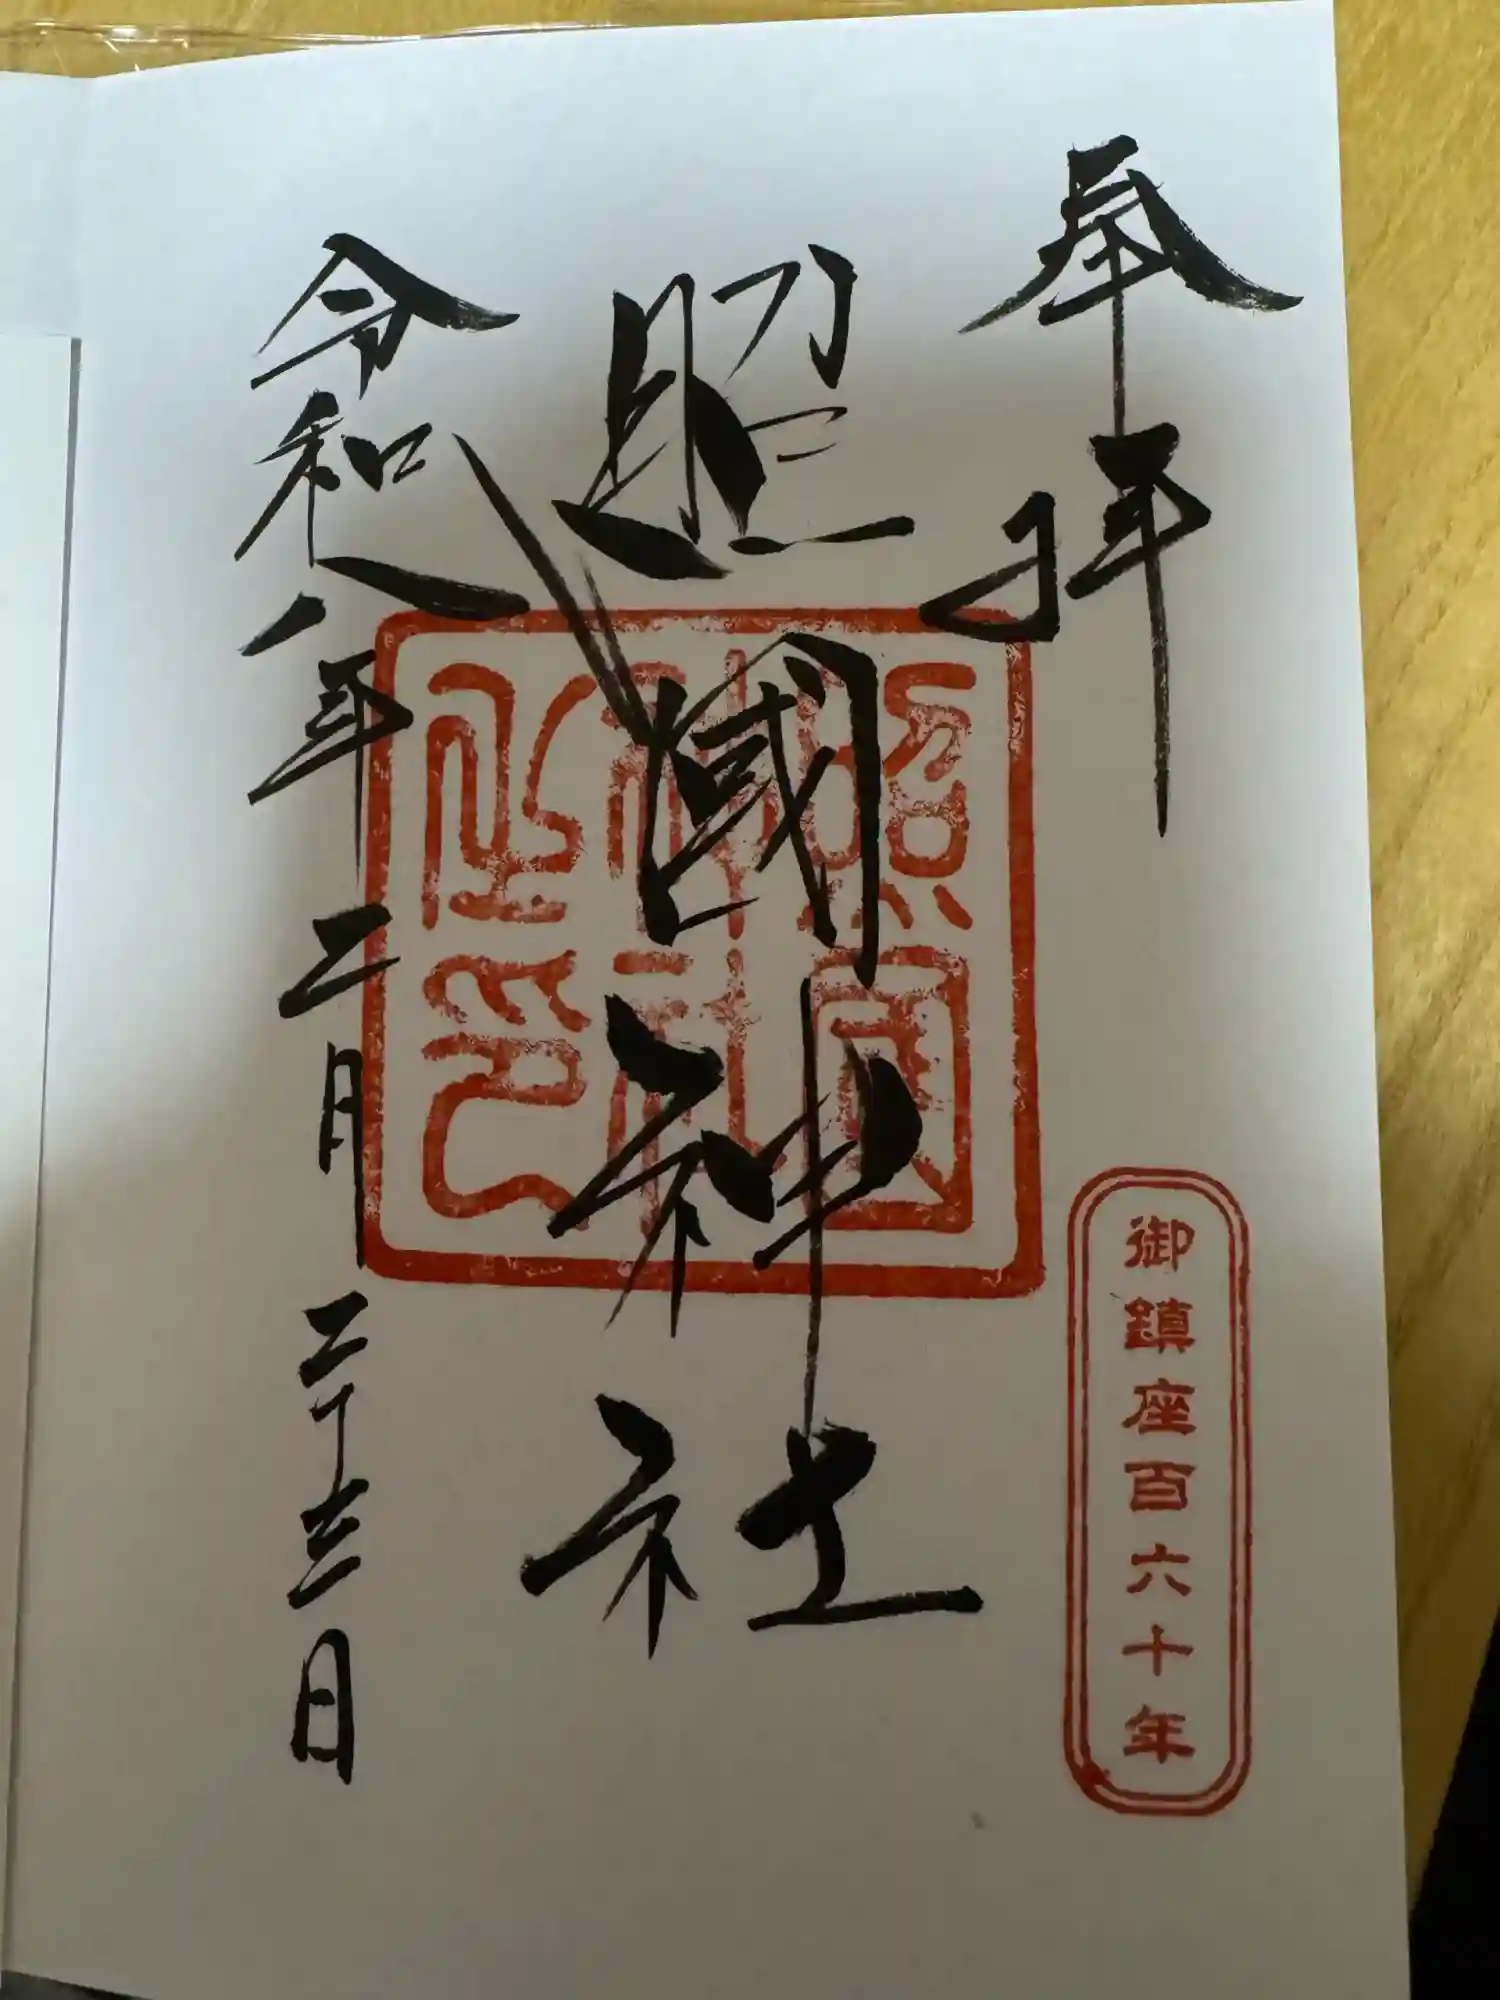 奉拝
御鎮座百六十年
照國神社
照國
神社
之璽
令和八年二月二十三日